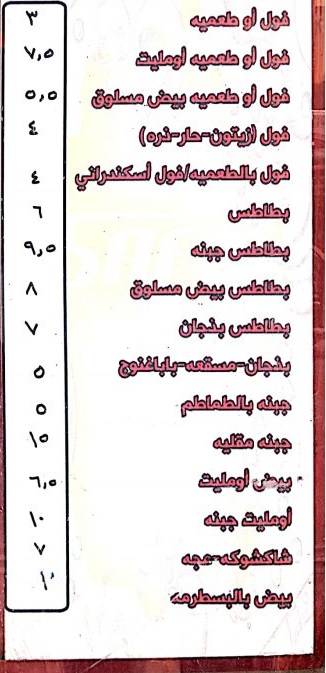 فول أو طعميه ٣
فول أو طعميه أومليت ٧,٥
فول أو طعميه بيض مسلوق ٥,٥
فول (زيتون-حار-ذره) ٤
فول بالطعميه/فول أسكندراني ٤
بطاطس ٦
بطاطس جبنه ٩,٥
بطاطس بيض مسلوق ٨
بطاطس بذنجان ٧
بذنجان-مسقعه-باباغنوج ٥
جبنه بالطماطم ٥
جبنه مقليه ١٥
بيض أومليت ٦,٥
أومليت جبنه ١٠
شاكشوكه-عجه ٧
بيض بالبسطرمه ١٠